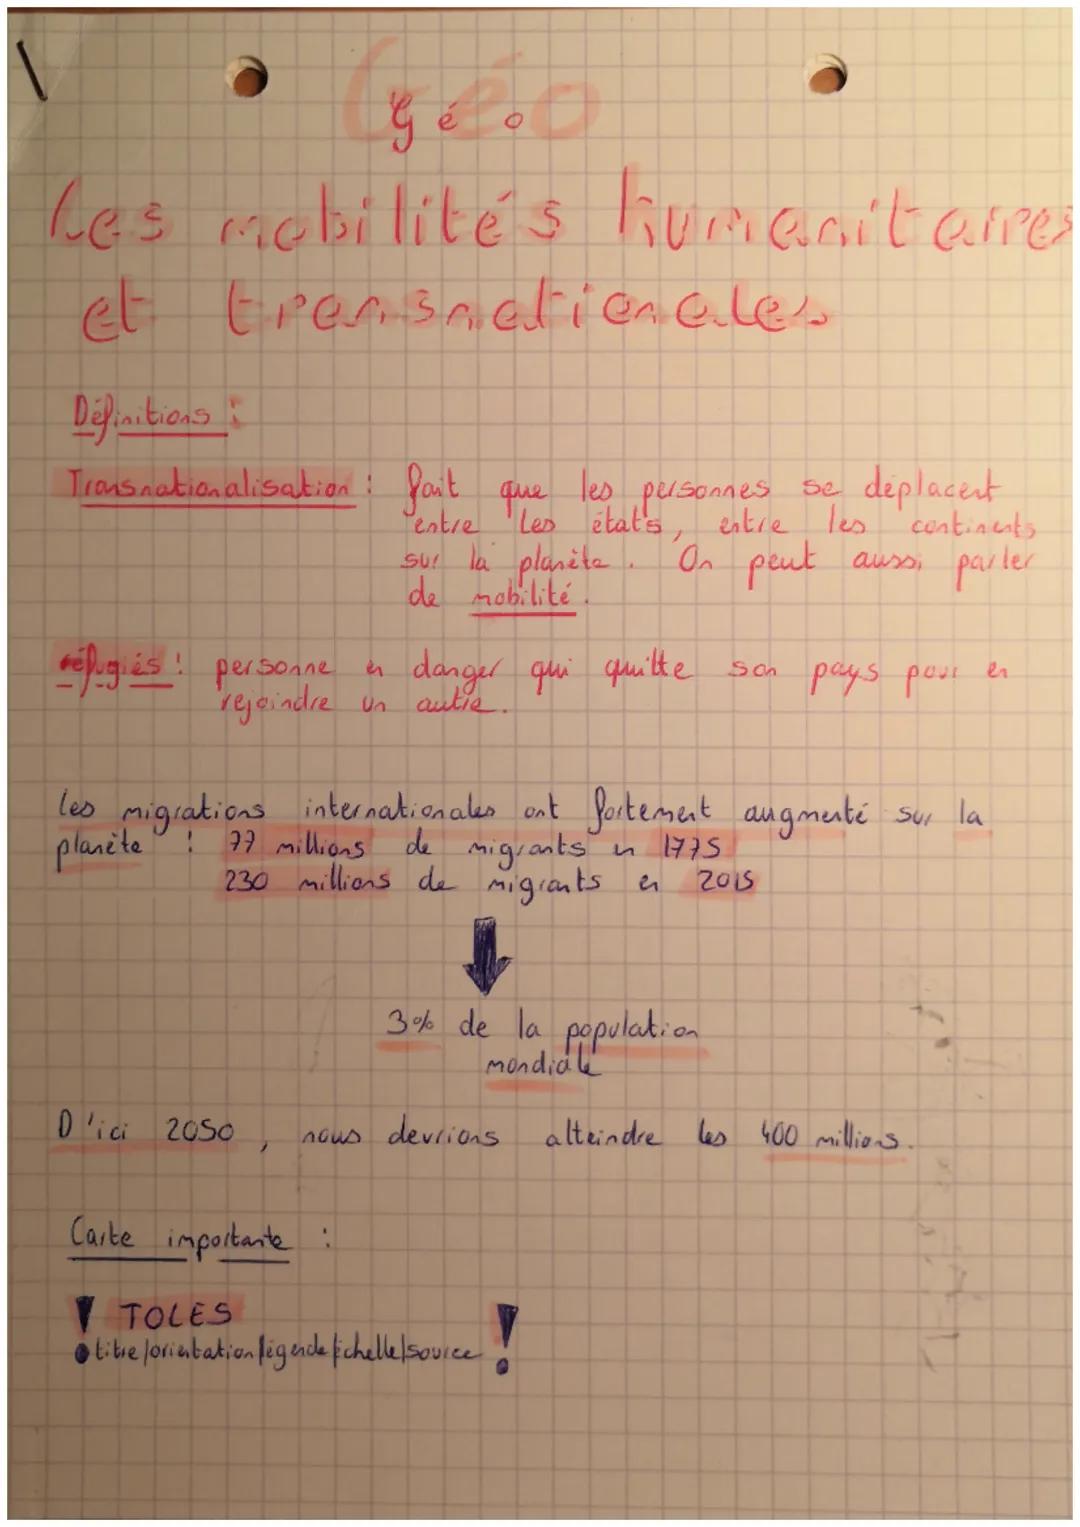 Géo
Les mobilités humanitaires
et transnationales
Définitions :
Transnationalisation : fait que les personnes se déplacent
entre les états, entre les continents
sur la planète. On peut aussi parler
de mobilité.
réfugiés : personne en danger qui quitte son pays pour en
rejoindre un autre.
les migrations internationales ont fortement augmenté sur la
planète : 77 millions de migrants en 1775
230 millions de migrants en 2015
3% de la population
mondiale
D'ici 2050, nous devrions atteindre les 400 millions.
Carte importante :
! TOLES !
titre/orientation/légende/échelle/source